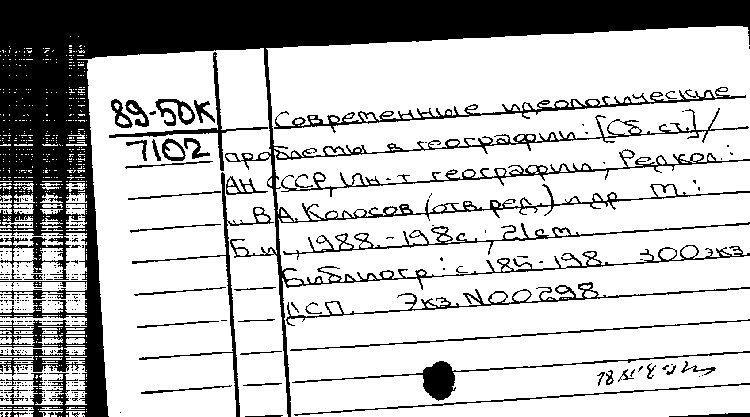 89-50К
7102
Современные идеологические
проблемы в географии: [Сб. ст.] /
АН СССР, Ин-т географии; Редкол.:
.. В.А. Колосов (отв. ред.) и др М.:
Б.и., 1988. - 198с.; 21см.
Библиогр: с. 185-198. 300экз.
ДСП. Экз. N00298.